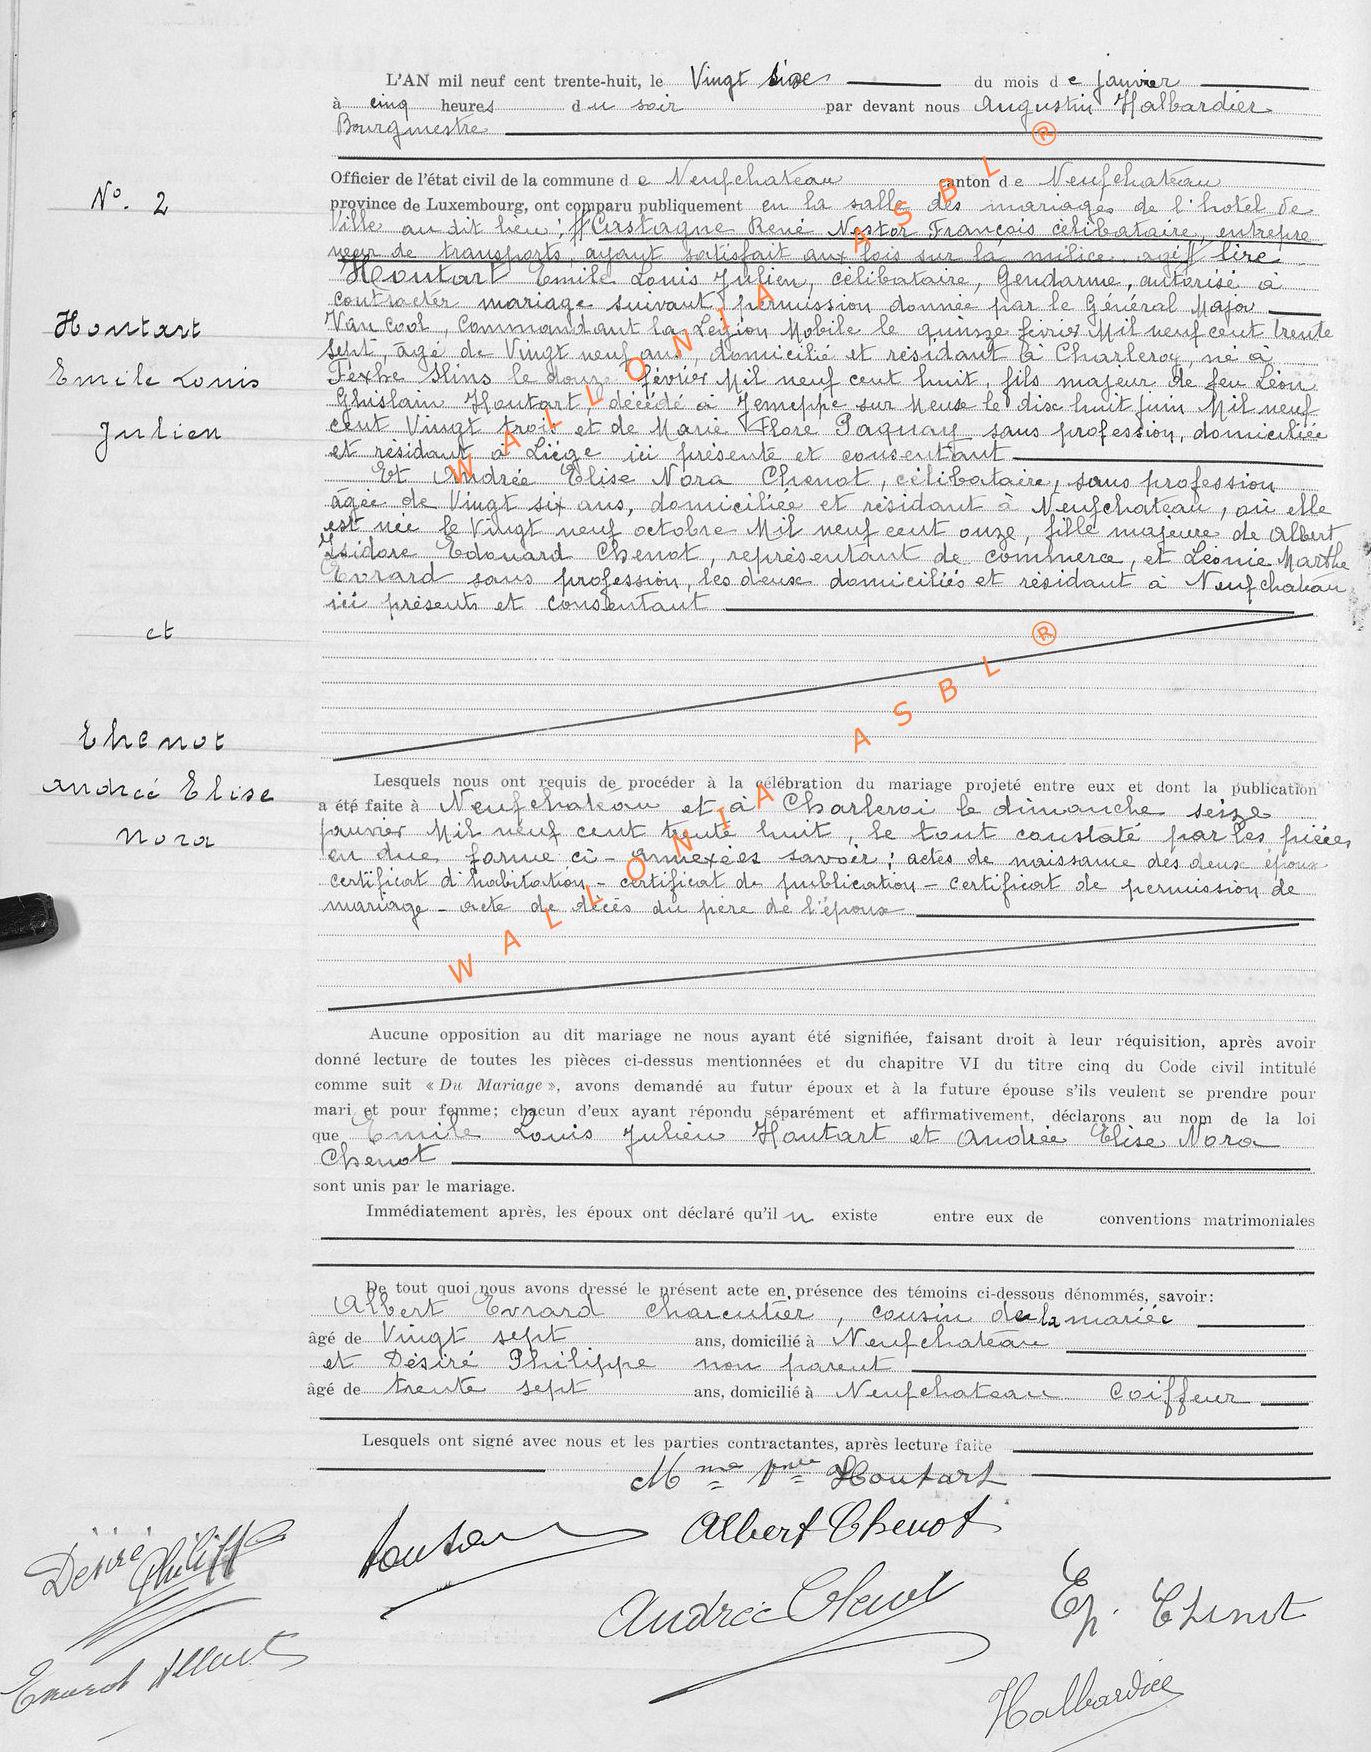 L'AN mil neuf cent trente-huit, le Vingt six du mois de janvier
à cinq heures du soir par devant nous Augustin Halbardier
Bourgmestre
Officier de l'état civil de la commune de Neufchateau canton de Neufchateau
N° 2
province de Luxembourg, ont comparu publiquement en la salle des mariages de l'hotel de
Ville au dit lieu : // Castagne René Nestor François célibataire, entrepre
neur de transports, ayant satisfait aux lois sur la milice, agé // lire
Houtart Emile Louis Julien, célibataire, Gendarme, autorisé à
contracter mariage suivant permission donnée par le Général Major
Houtart
Van Cool, Commandant la Légion Mobile le quinze fevrier Mil neuf cent trente
sept, âgé de Vingt neuf ans, domicilié et résidant à Charleroy, né à
Emile Louis
Fexhe Slins le douze février Mil neuf cent huit, fils majeur de feu Léon
Ghislain Houtart, décédé à Jemeppe sur Meuse le dix huit juin Mil neuf
Julien
cent Vingt trois et de Marie Flore Paquay sans profession, domiciliée
et résidant à Liége ici présente et consentant
Et Andrée Elise Nora Chenot, célibataire, sans profession
âgée de Vingt six ans, domiciliée et résidant à Neufchateau, où elle
est née le Vingt neuf octobre Mil neuf cent onze, fille majeure de Albert
Isidore Edouard Chenot, représentant de commerce, et Léonie Marthe
Evrard sans profession, les deux domiciliés et résidant à Neufchateau
ici présents et consentant
et
Chenot
Andrée Elise
Nora
Lesquels nous ont requis de procéder à la célébration du mariage projeté entre eux et dont la publication
a été faite à Neufchateau et à Charleroi le dimanche seize
janvier Mil neuf cent trente huit, le tout constaté par les pièces
en due forme ci-annexées savoir : actes de naissance des deux époux
certificat d'habitation - certificat de publication - certificat de permission de
mariage - acte de décès du père de l'époux
Aucune opposition au dit mariage ne nous ayant été signifiée, faisant droit à leur réquisition, après avoir
donné lecture de toutes les pièces ci-dessus mentionnées et du chapitre VI du titre cinq du Code civil intitulé
comme suit « Du Mariage », avons demandé au futur époux et à la future épouse s'ils veulent se prendre pour
mari et pour femme; chacun d'eux ayant répondu séparément et affirmativement, déclarons au nom de la loi
que Emile Louis Julien Houtart et Andrée Elise Nora
Chenot
sont unis par le mariage.
Immédiatement après, les époux ont déclaré qu'il n existe entre eux de conventions matrimoniales
De tout quoi nous avons dressé le présent acte en présence des témoins ci-dessous dénommés, savoir:
Albert Evrard charcutier, cousin de la mariée
âgé de Vingt sept ans, domicilié à Neufchateau
et Désiré Philippe non parent
âgé de trente sept ans, domicilié à Neufchateau Coiffeur
Lesquels ont signé avec nous et les parties contractantes, après lecture faite
Mme Vve Houtart
Désiré Philippe
Houtart
Albert Chenot
Andrée Chenot
Ep. Chenot
Evrard Albert
Halbardier
WALLONIA ASBL ®
WALLONIA ASBL ®